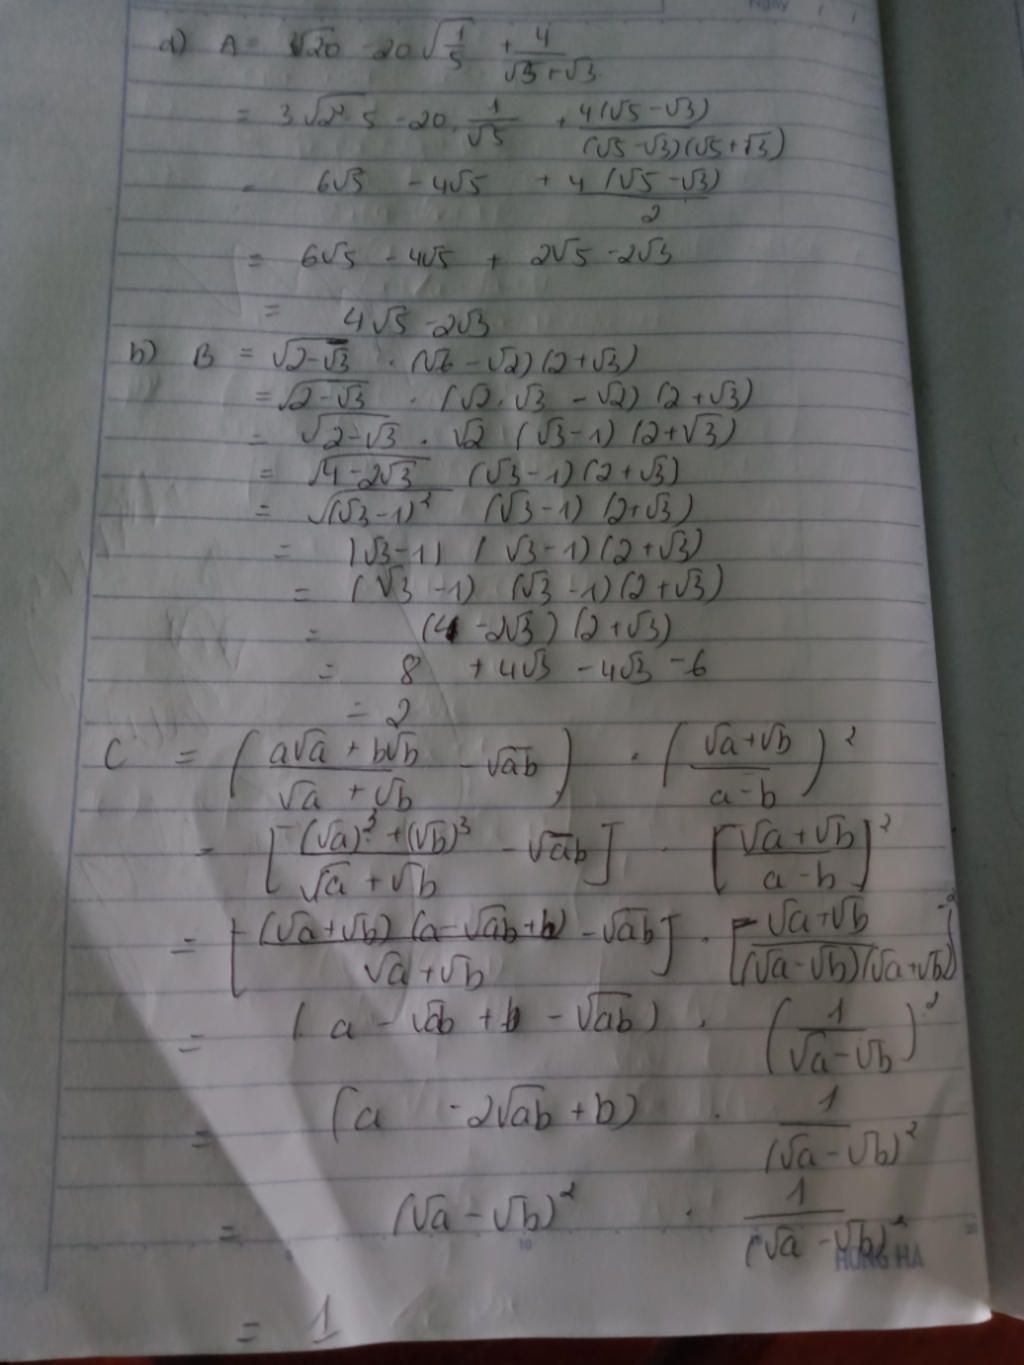 Ngày
a) A = 3√20 - 20√(1/5) + 4/(√5+√3)
= 3√(2²·5) - 20 . 1/√5 + 4(√5 - √3)/((√5 - √3)(√5 + √3))
= 6√5 - 4√5 + 4(√5 - √3)/2
= 6√5 - 4√5 + 2√5 - 2√3
= 4√5 - 2√3
b) B = √(2-√3) . (√6 - √2)(2+√3)
= √(2-√3) . (√2.√3 - √2)(2+√3)
= √(2-√3) . √2 (√3-1)(2+√3)
= √(4-2√3) (√3-1)(2+√3)
= √((√3-1)²) (√3-1)(2+√3)
= |√3-1| (√3-1)(2+√3)
= (√3-1) (√3-1)(2+√3)
= (4-2√3)(2+√3)
= 8 + 4√3 - 4√3 - 6
= 2
C = ((a√a + b√b)/(√a + √b) - √ab) . ((√a+√b)/(a-b))²
= [((√a)³ + (√b)³)/(√a + √b) - √ab] . [(√a+√b)/(a-b)]²
= [(√a+√b)(a-√ab+b)/(√a+√b) - √ab] . [(√a+√b)/((√a-√b)(√a+√b))]²
= (a - √ab + b - √ab) . (1/(√a-√b))²
= (a - 2√ab + b) . 1/(√a-√b)²
= (√a-√b)² . 1/(√a-√b)²
HONG HA
= 1